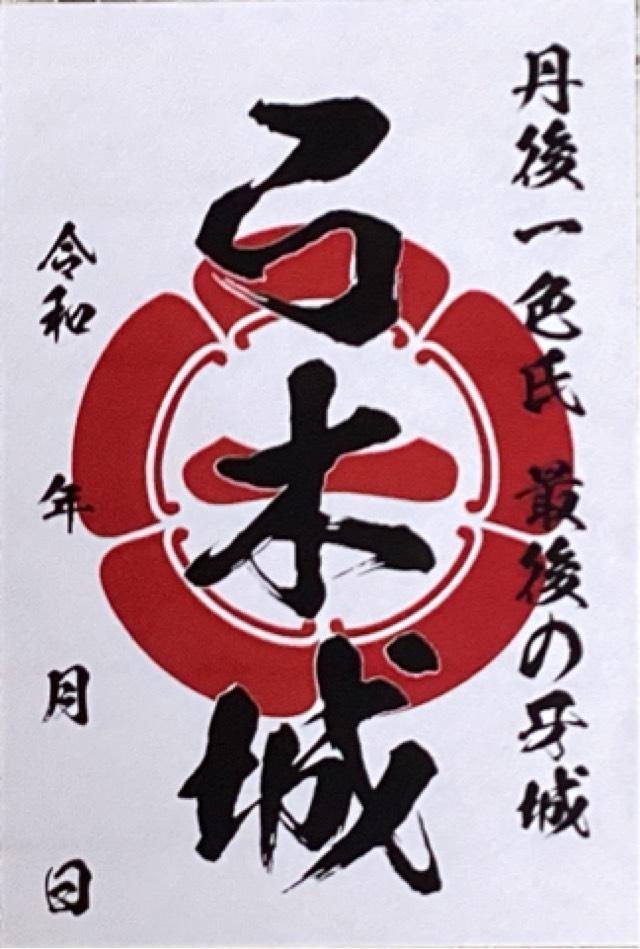 丹後一色氏 最後の牙城
弓木城
令和 年 月 日